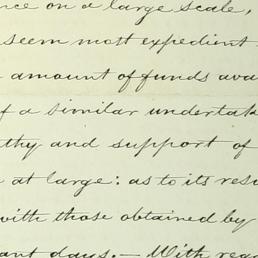 nce on a large scale,
seem most expedient
amount of funds ava
f a similar undertak
thy and support of
at large: as to its resu
with those obtained by
ant days. — With rega